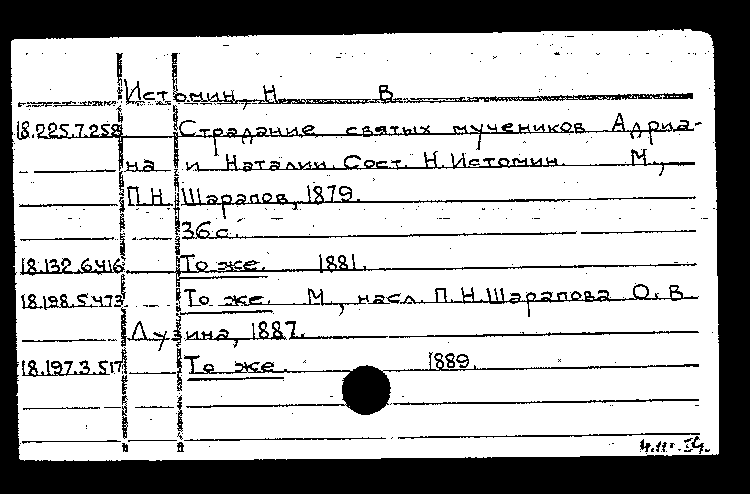 Истомин, Н В
18.225.7.258 Страдание святых мучеников Адриа-
на и Наталии. Сост. Н. Истомин. М.,
П.Н. Шарапов, 1879.
36 с.
18.132.6.416 То же. 1881.
18.198.5.473 То же. М., насл. П.Н. Шарапова О. В
Лузина, 1887.
18.197.3.517 То же. 1889.